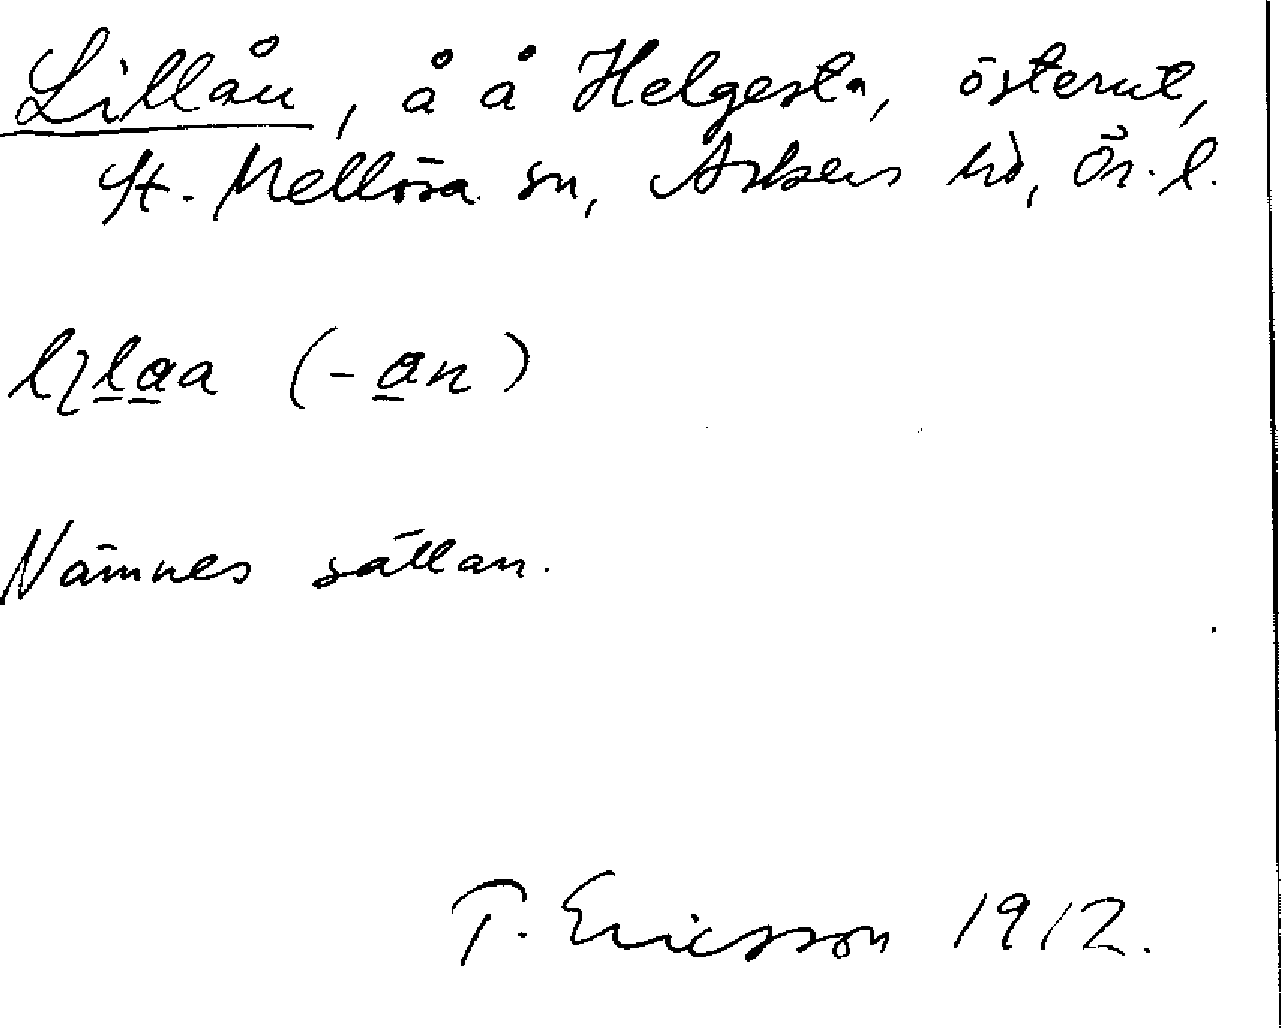 Lillån, å å Helgesta, österut,
St. Mellösa sn, Askers hd, Ör. l.
(-an)
Nämnes sällan.
T. Ericsson 1912.